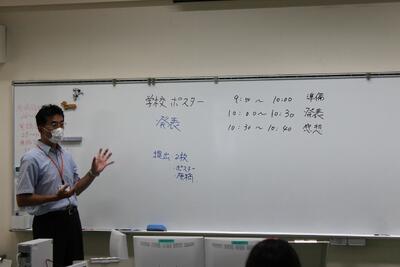 学校 ポスター
発表
提出 2枚
・ポスター
・原稿
9:50〜10:00 準備
10:00〜10:30 発表
10:30〜10:40 感想